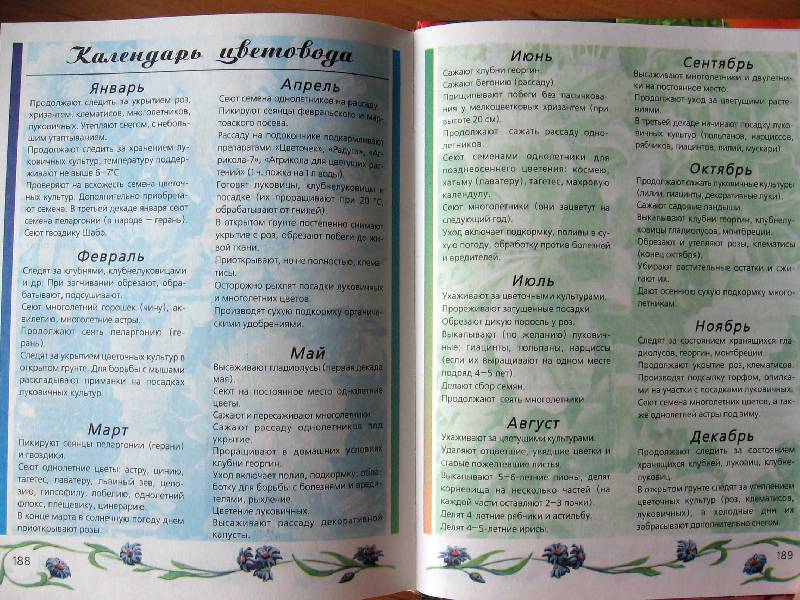 Календарь цветовода
Январь
Продолжают следить за укрытием роз,
хризантем, клематисов, многолетников,
луковичных. Утепляют снегом, с неболь-
шим утаптыванием.
Продолжают следить за хранением лу-
ковичных культур, температуру поддер-
живают не выше 6–7°С
Проверяют на всхожесть семена цветоч-
ных культур. Дополнительно приобрета-
ют семена. В третьей декаде января сеют
семена пеларгонии (в народе — герань).
Сеют гвоздику Шабо.
Февраль
Следят за клубнями, клубнелуковицами
и др. При загнивании обрезают, обра-
батывают, подсушивают.
Сеют многолетний горошек (чину), ак-
вилегию, многолетние астры.
Продолжают сеять пеларгонию (ге-
рань).
Следят за укрытием цветочных культур в
открытом грунте. Для борьбы с мышами
раскладывают приманки на посадках
луковичных культур.
Март
Пикируют сеянцы пеларгонии (герани)
и гвоздики.
Сеют однолетние цветы: астру, цинию,
тагетес, паватеру, львиный зев, цело-
зию, гипсофилу, лобелию, однолетний
флокс, плещевику, цинерарию.
В конце марта в солнечную погоду днем
приоткрывают розы.
188
Апрель
Сеют семена однолетников на рассаду.
Пикируют сеянцы февральского и мар-
товского посева.
Рассаду на подоконнике подкармливают
препаратами «Цветочек», «Радуга», «Аг-
рикола-7», «Агрикола для цветущих рас-
тений» (1 ч. ложка на 1 л воды).
Готовят луковицы, клубнелуковицы к
посадке (их проращивают при 20 °С,
обрабатывают от гнилей).
В открытом грунте постепенно снимают
укрытие с роз, обрезают побеги до жи-
вой ткани.
Приоткрывают, но не полностью, клема-
тисы.
Осторожно рыхлят посадки луковичных
и многолетних цветов.
Производят сухую подкормку органиче-
скими удобрениями.
Май
Высаживают гладиолусы (первая декада
мая).
Сеют на постоянное место однолетние
цветы.
Сажают и пересаживают многолетники.
Сажают рассаду однолетников под
укрытие.
Проращивают в домашних условиях
клубни георгин.
Уход включает полив, подкормку, обра-
ботку для борьбы с болезнями и вреди-
телями, рыхление.
Цветение луковичных.
Высаживают рассаду декоративной
капусты.
Июнь
Сажают клубни георгин.
Сажают бегонию (рассаду).
Прищипывают побеги без пасынкова-
ния у мелкоцветковых хризантем (при
высоте 20 см).
Продолжают сажать рассаду одно-
летников.
Сеют семенами однолетники для
позднеосеннего цветения: космею,
хатьму (паватеру), тагетес, махровую
календулу.
Сеют многолетники (они зацветут на
следующий год).
Уход включает подкормку, поливы в су-
хую погоду, обработку против болезней
и вредителей.
Июль
Ухаживают за цветочными культурами.
Прореживают загущенные посадки.
Обрезают дикую поросль у роз.
Выкапывают (по желанию) лукович-
ные: гиацинты, тюльпаны, нарциссы
(если их выращивают на одном месте
подряд 4–5 лет).
Делают сбор семян.
Продолжают сеять многолетники.
Август
Ухаживают за цветущими культурами.
Удаляют отцветшие, увядшие цветки и
старые пожелтевшие листья.
Выкапывают 5–6-летние пионы, делят
корневища на несколько частей (на
каждой части оставляют 2–3 почки).
Делят 4-летние рябчики и астильбу.
Делят 4–5-летние ирисы.
Сентябрь
Высаживают многолетники и двулетни-
ки на постоянное место.
Продолжают уход за цветущими расте-
ниями.
В третьей декаде начинают посадку луко-
вичных культур (тюльпанов, нарциссов,
рябчиков, гиацинтов, лилий, мускари).
Октябрь
Продолжают сажать луковичные культуры
(лилии, гиацинты, декоративные луки).
Сажают садовые ландыши.
Выкапывают клубни георгин, клубнелу-
ковицы гладиолусов, монтбреции.
Обрезают и утепляют розы, клематисы
(конец октября).
Убирают растительные остатки и сжи-
гают их.
Дают осеннюю сухую подкормку много-
летникам.
Ноябрь
Следят за состоянием хранящихся гла-
диолусов, георгин, монтбреции.
Продолжают укрытие роз, клематисов.
Производят подсыпку торфом, опилка-
ми на участки с посадками луковичных.
Сеют семена многолетних цветов, а так-
же однолетней астры под зиму.
Декабрь
Продолжают следить за состоянием
хранящихся клубней, луковиц, клубне-
луковиц.
В открытом грунте следят за утеплением
цветочных культур (роз, клематисов,
луковичных), а холодные дни их
забрасывают дополнительно снегом.
189